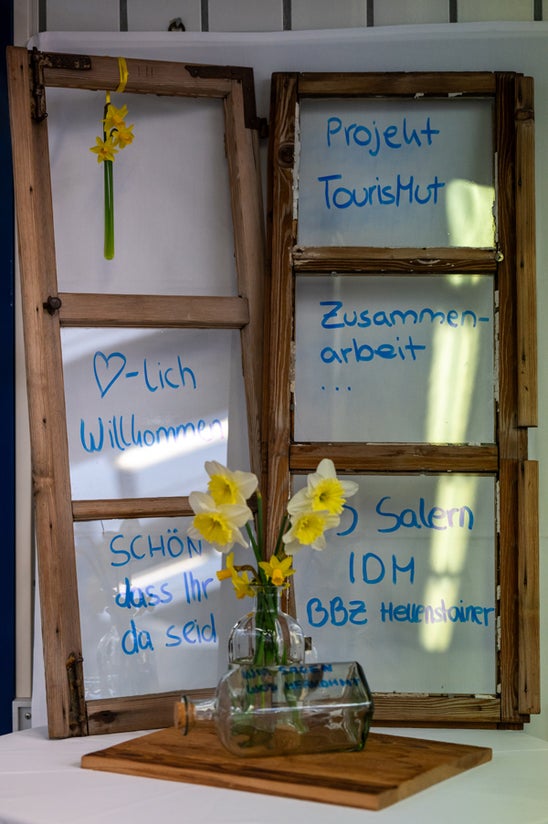 ♡-lich
Willkommen
SCHÖN
dass Ihr
da seid
Projekt
TourisMut
Zusammen-
arbeit
...
Salern
IDM
BBZ Hellensteiner
WIR SAGEN